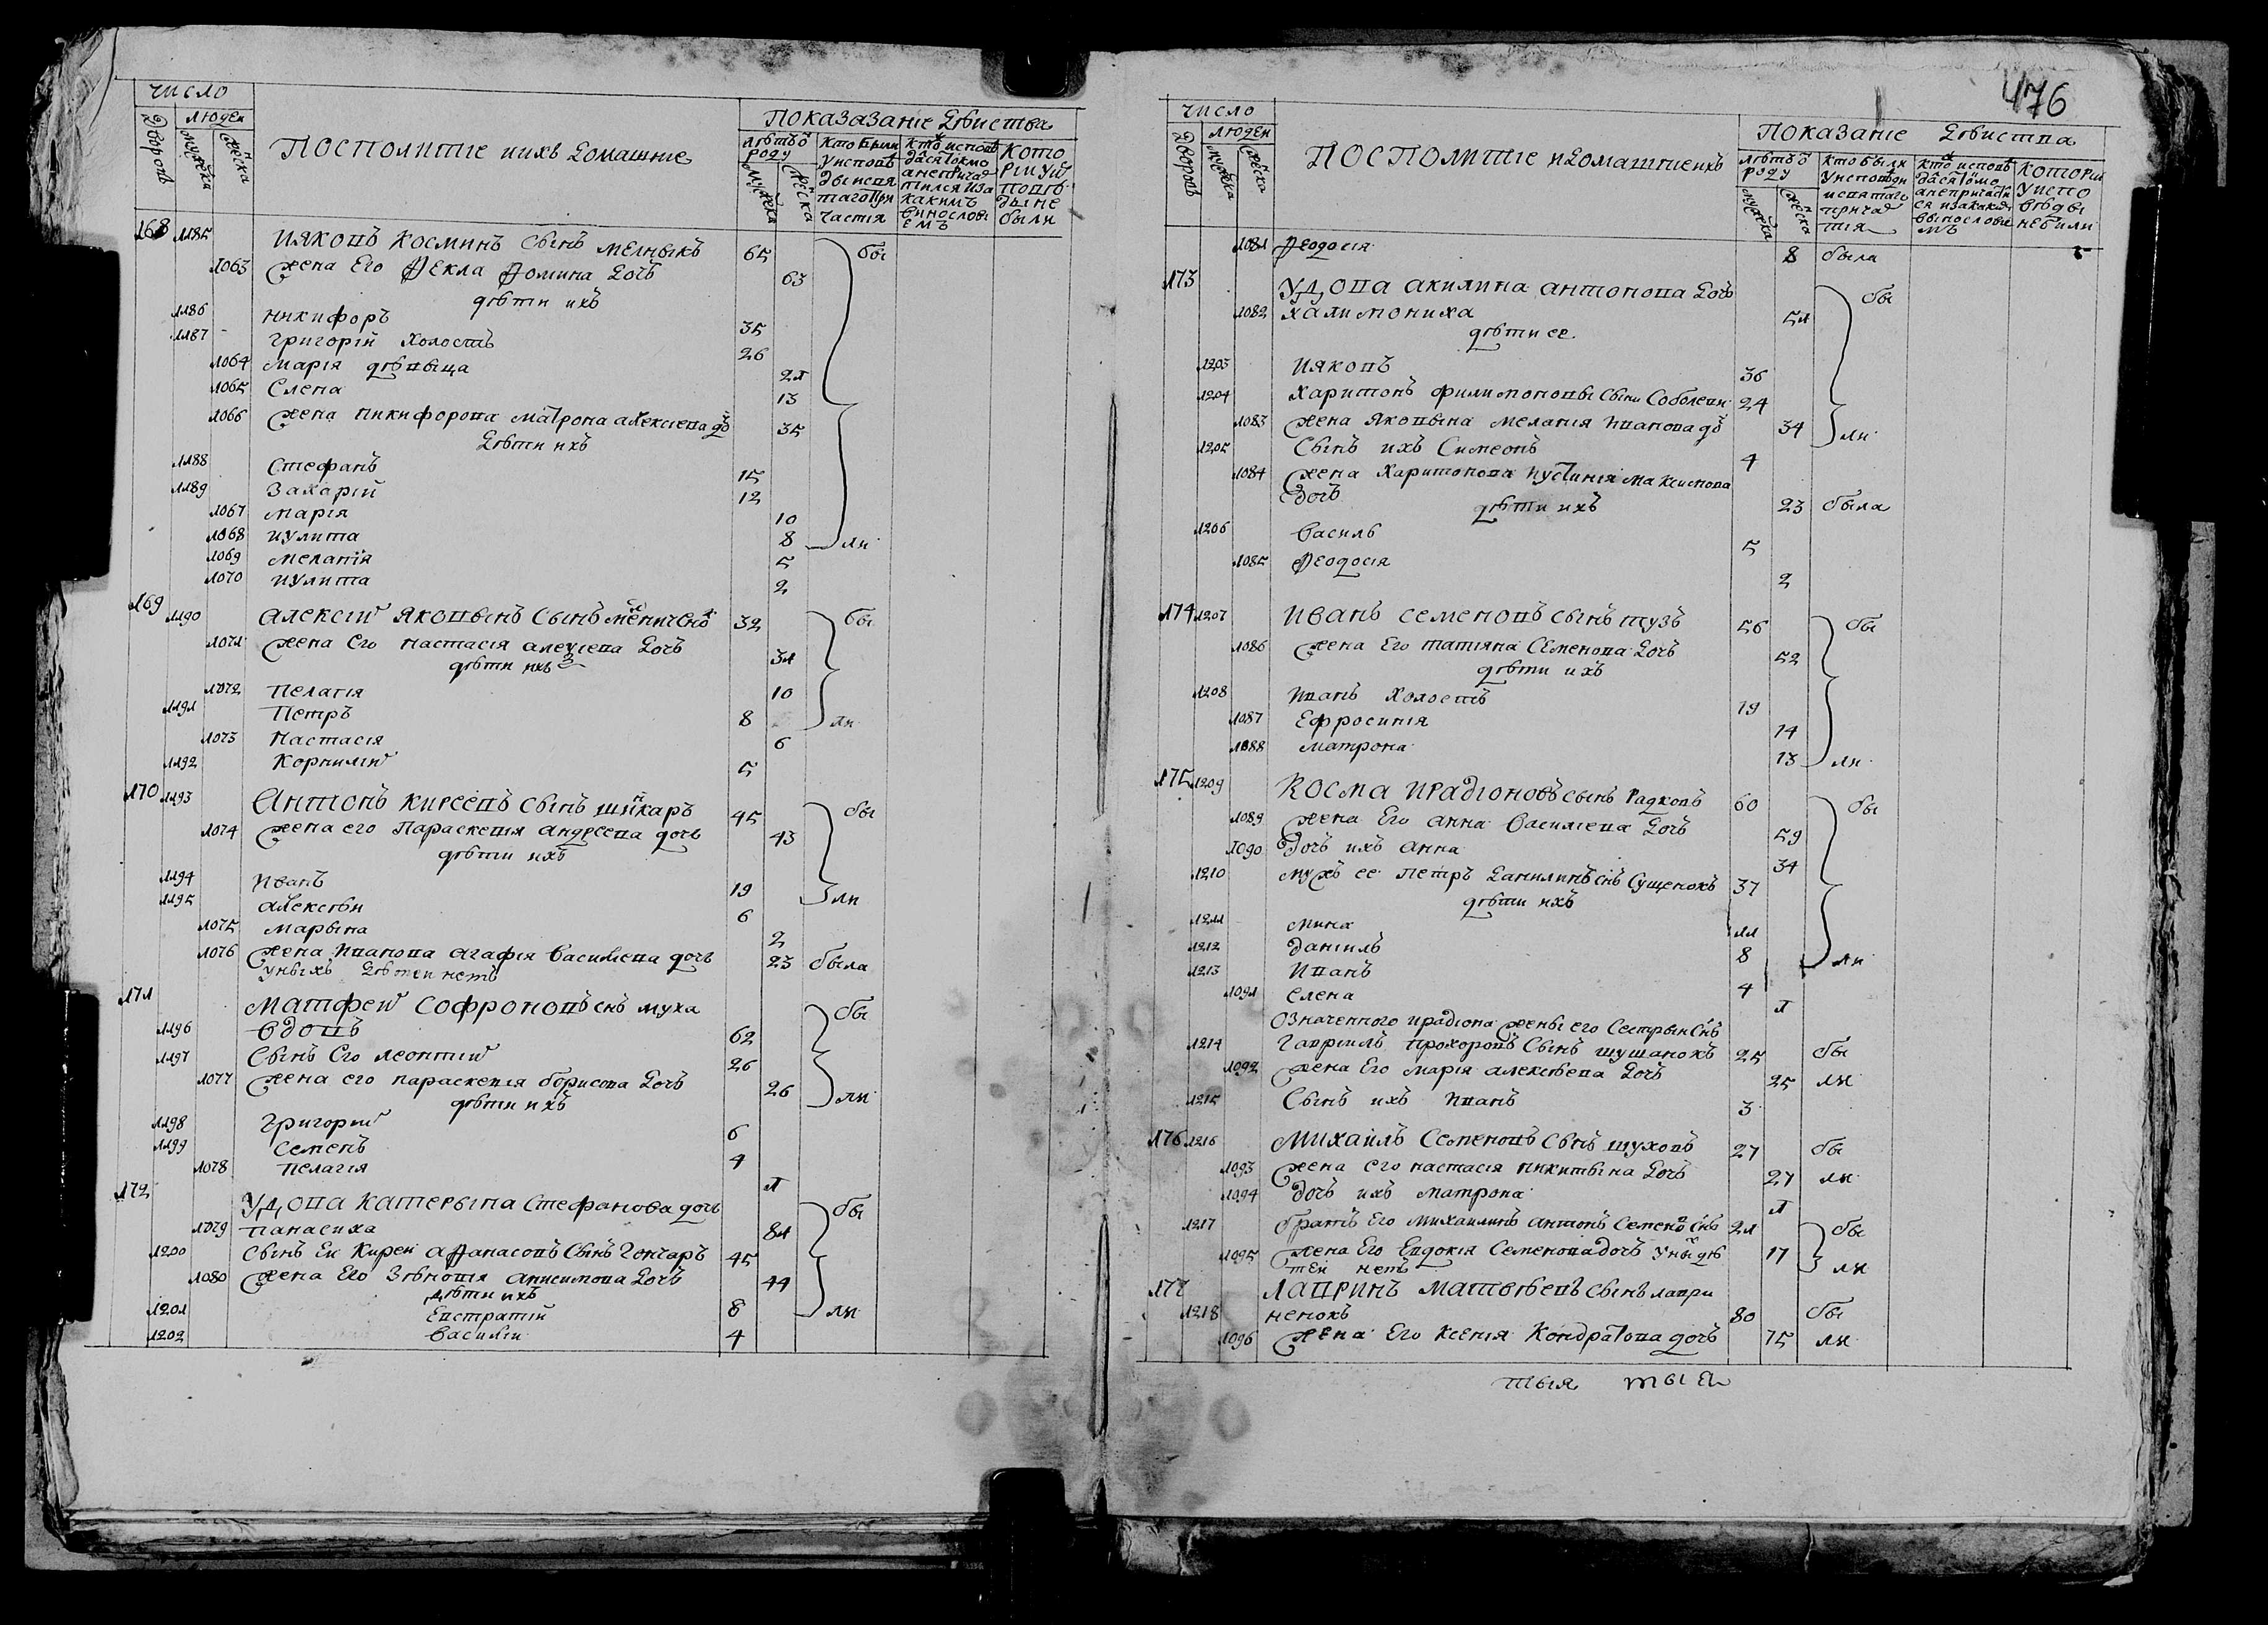 число
людеи
Дворовъ
мужеска
женска
Посполитіе иихъ Домашніе
Показазаніе Дѣиства
лѣтъ ѿ роду
мужеска
женска
Кто были уисповѣди
Кто исповѣдася токмо
Кото
были
168 1185 Ияковъ Косминъ Сынъ Мелныкъ 65 бы
1063 жена Его Ѳекла Ѳомина Дочъ 63
дѣти ихъ
1186 никифоръ 35
1187 григорій холостъ 26
1064 Марія дѣвыца 21
1065 Елена 13
1066 жена никифорова матрона алексіева дочъ 35
Дѣти ихъ
1188 Стефанъ 15
1189 Захарій 12
1067 Марія 10
1068 иулита 8 ли
1069 меланія 5
1070 иулита 2
169 1190 Алексій Яковынъ Сынъ 32 бы
1071 жена Его настасія алеѯіева Дочъ 31
дѣти ихъ
1072 Пелагія 10
1191 Петръ 8 ли
1073 Настасія 6
1192 Корнилій 5
170 1193 Антонъ Кирѣевъ Сынъ шинкаръ 45 бы
1074 жена его Параскевія Андреева дочъ 43
дѣти ихъ
1194 Иванъ 19 ли
1195 алексѣи 6
1075 марына 2
1076 жена Иванова агафія Василіева дочъ 23 была
унихъ Дѣтеи нетъ
171 Матфей Софроновъ снъ муха бы
1196 вдовъ 62
1197 Сынъ Его леонтій 26
1077 жена его параскевія борисова Дочъ 26 ли
дѣти ихъ
1198 григорій 6
1199 Семенъ 4
1078 пелагія 1
172 Удова Катерына Стефанова дочъ бы
1079 панасиха 81
1200 Сынъ Еи Киреи аѲанасовъ Сынъ Гончаръ 45
1080 жена Его Зѣновія анисимова Дочъ 44
дѣти ихъ
1201 Евстратій 8 ли
1202 Василіи 4
476
число
людеи
Дворовъ
мужеска
женска
Посполитіе иДомашніеихъ
Показаніе Дѣиства
лѣтъ ѿ роду
мужеска
женска
Кто были
Которіи
небили
1081 Ѳеодосія 8 была
173 Удова акилина антонова Дочъ бы
1082 халимониха 51
дѣти ее
1203 Ияковъ 36
1204 Харитонъ филимоновы Сыни Соболеви 24
1083 жена Яковына меланія иванова дочъ 34 ли
1205 Сынъ ихъ Симеонъ 4
1084 жена Харитонова иустинія максимова
дочъ 23 была
дѣти ихъ
1206 Василь 5
1085 Ѳеодосія 2
174 1207 Иванъ Семеновъ сынъ тузъ 56 бы
1086 жена Его татіяна Семенова Дочъ 52
дѣти ихъ
1208 Иванъ Холостъ 19
1087 Ефросинія 14
1088 матрона 13 ли
175 1209 Косма Ирадіоновъ сынъ Радковъ 60 бы
1089 жена Его анна Василіева Дочъ 59
1090 дочъ ихъ анна 34
1210 мужъ ее Петръ Данилинъ снъ Сущенокъ 37
дѣти ихъ
1211 мина 11
1212 даніилъ 8 ли
1213 Иванъ 4
1091 елена 1
Означенного ирадіона жены его Сестрын Снъ
1214 Гавріилъ Прохоровъ Сынъ шушанокъ 25 бы
1092 жена Его марія алексѣева Дочъ 25 ли
1215 Сынъ ихъ Иванъ 3
176 1216 Михаилъ Семеновъ Сынъ шуховъ 27 бы
1093 жена его настасія никитына Дочъ 27 ли
1094 дочъ ихъ матрона 1
1217 братъ Его михаилинъ антонъ Семеновъ Снъ 21 бы
1095 жена Его Евдокія Семенова дочъ уныхъ дѣ 17 ли
теи нетъ
177 Лавринъ Матвѣевъ сынъ лаври
1218 ненокъ 80 бы
1096 жена Его Ксенія Кондратова дочъ 75 ли